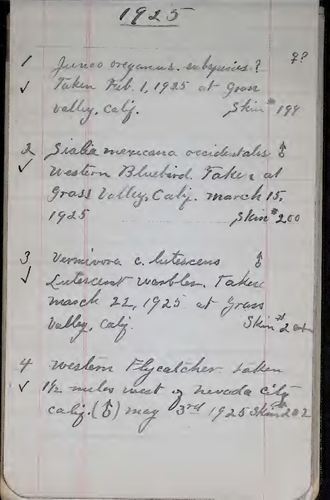 1925
1 Junco oreganus. subspecies? ♀?
✓ Taken Feb. 1, 1925 at Grass
Valley, Calif. Skin # 199
2 Sialia mexicana occidentalis ♂
✓ Western Bluebird. Taken at
Grass Valley, Calif. March 15,
1925 Skin # 200
3 Vermivora c. lutescens ♂
✓ Lutescent warbler. Taken
March 22, 1925 at Grass
Valley, Calif. Skin #
4 Western Flycatcher. taken
✓ 1½ miles west of Nevada City
Calif. (♂) May 3rd 1925 Skin # 202